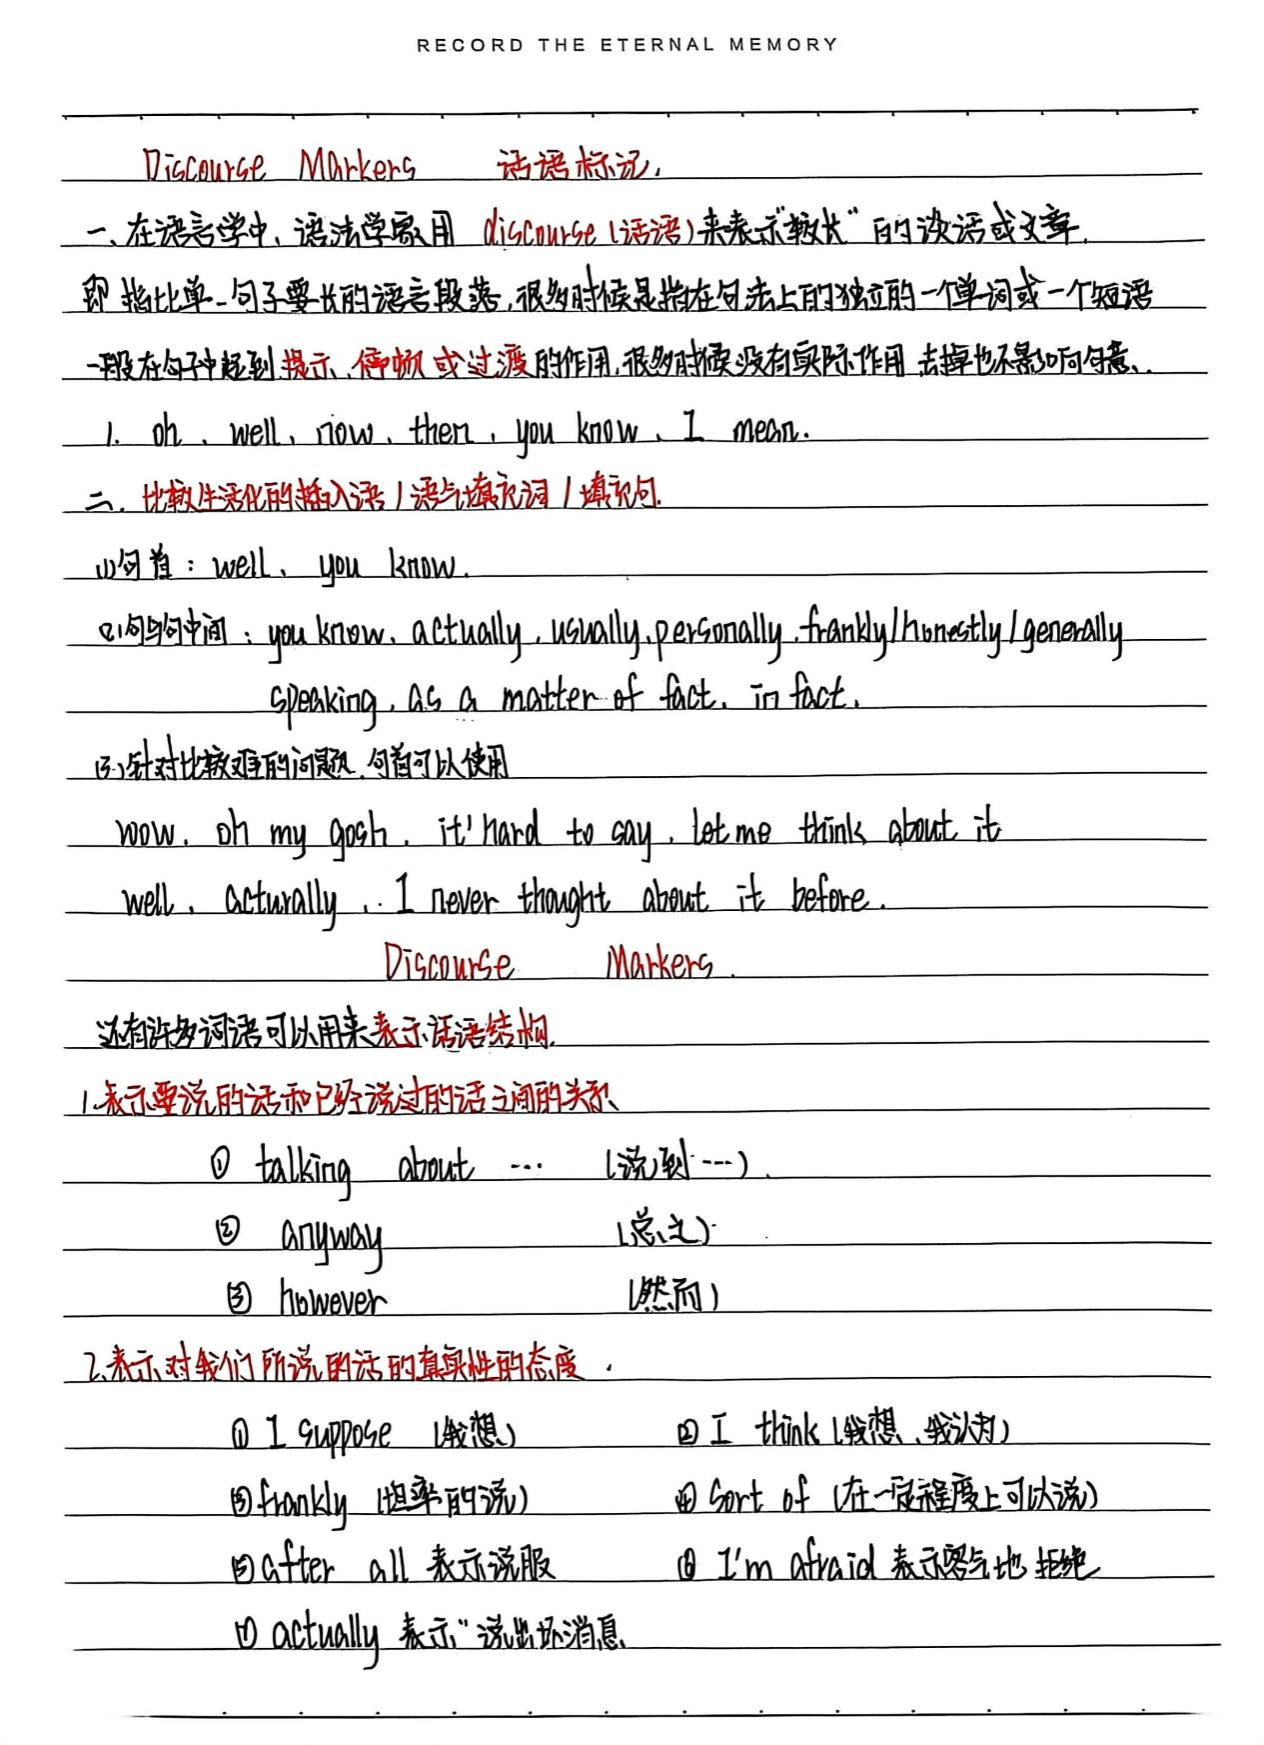 RECORD THE ETERNAL MEMORY
Discourse Markers 话语标记.
一、在语言学中、语法学家用 discourse(话语)来表示"较长"的谈话或文章.
即指比单一句子要长的语言段落,很多时候是指在句法上的独立的一个单词或一个短语
一般在句子中起到提示、停顿或过渡的作用,很多时候没有实际作用 去掉也不影响句意、.
1. oh、well、now、then、you know、I mean.
二. 比较生活化的插入语/语气填充词/填充句.
(1)句首: well、you know.
(2)句与句中间: you know、actually、usually、personally、frankly/honestly/generally
speaking、as a matter of fact、in fact.
(3)针对比较难的问题、句首可以使用
wow、oh my gosh、it'hard to say、let me think about it
well、acturally、. I never thought about it before.
Discourse Markers.
还有许多词语可以用来表示话语结构.
1.表示要说的话和已经说过的话之间的关系、
① talking about ... (说到---).
② anyway (总之).
③ however (然而)
2.表示对我们所说的话的真实性的态度.
① I suppose (我想) ② I think (我想、我认为)
③ frankly (坦率的说) ④ Sort of (在一定程度上可以说)
⑤ after all 表示说服 ⑥ I'm afraid 表示客气地拒绝
⑦ actually 表示"说出坏消息